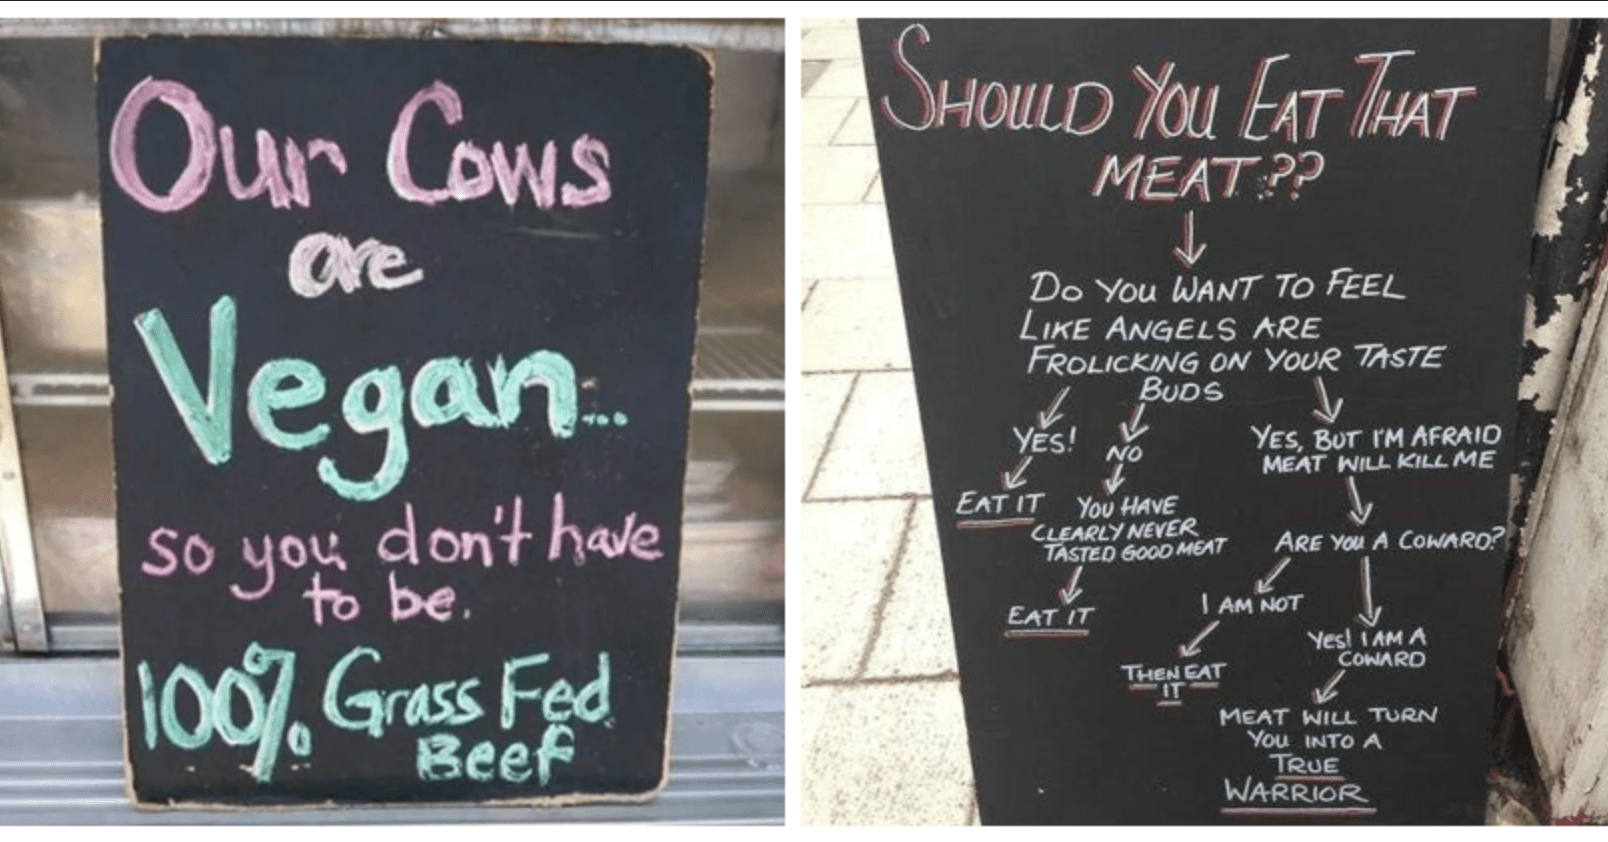 Our Cows
are
Vegan...
so you don't have
to be.
100% Grass Fed
Beef
SHOULD YOU EAT THAT
MEAT??
DO YOU WANT TO FEEL
LIKE ANGELS ARE
FROLICKING ON YOUR TASTE
BUDS
YES!
NO
YES, BUT I'M AFRAID
MEAT WILL KILL ME
EAT IT
YOU HAVE
CLEARLY NEVER
TASTED GOOD MEAT
EAT IT
ARE YOU A COWARD?
I AM NOT
THEN EAT
IT
Yes! I AM A
COWARD
MEAT WILL TURN
YOU INTO A
TRUE
WARRIOR